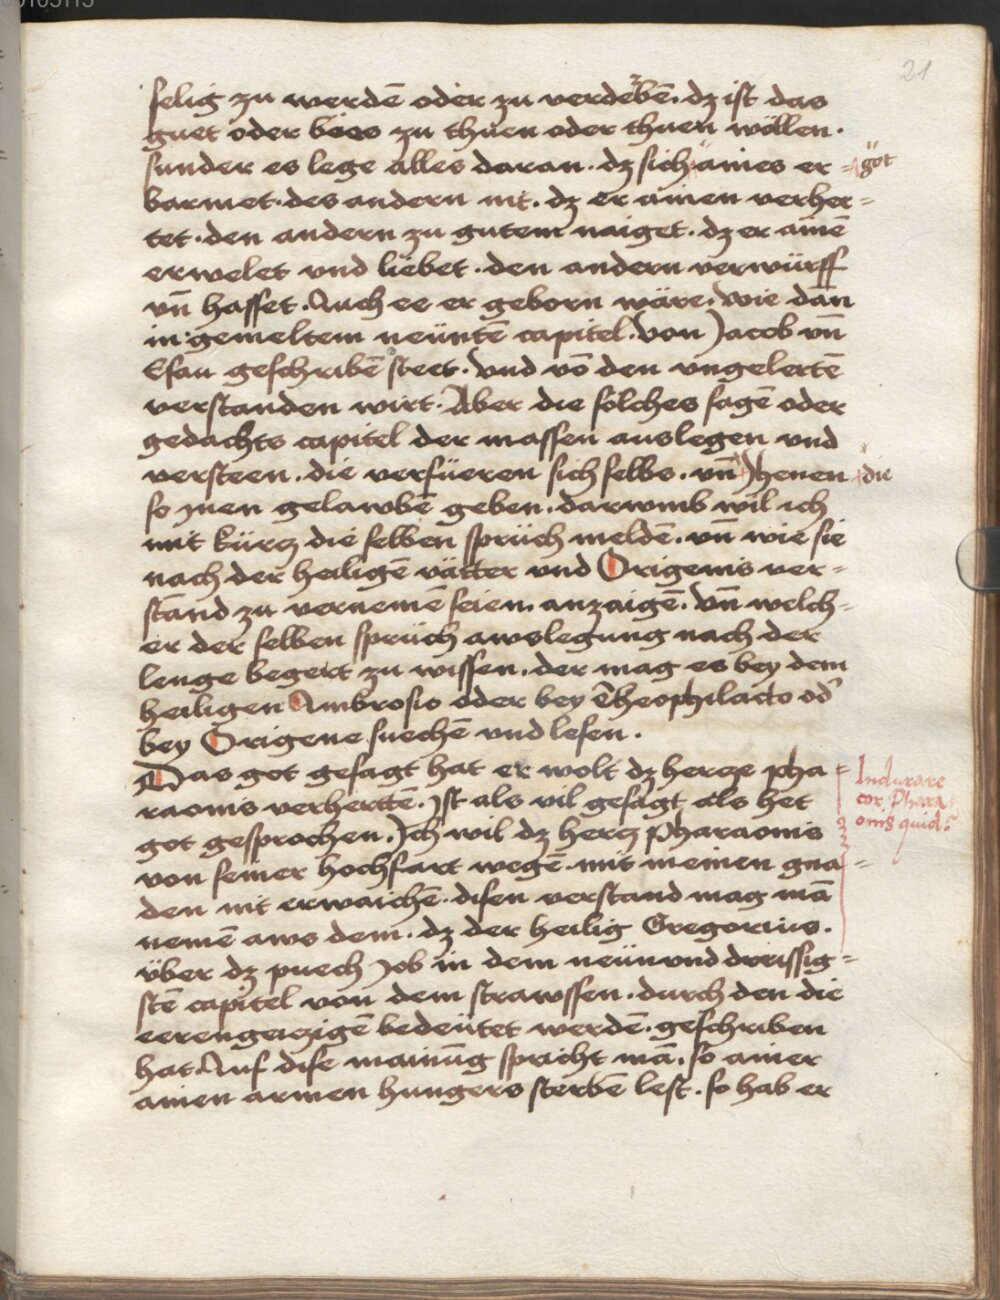 21
selig zu werdē oder zu verdeꝛbē. dz ist das
guet oder böes zu thuen oder thuen wöllen.
sunder es lege alles daran. dz sich aines er =
got
barmet. des andern nit. dz er ainen verher=
tet. den andern zu gutem naiget. dz er ainē
erwelet vnd liebet. den andern verwürff
vn̄ hasset. Auch ee er geborn wäre. wie dan̄
in gemeltem neüntē capitel von Jacob vn̄
Esau geschribē steet. vnd vō den vngelertē
verstanden wirt. Aber die solches sagē oder
gedachts capitel der massen auslegen vnd
versteen. die verfüeren sich selbs. vn̄ Jhenen
die
so jnen gelawbē geben. darwmb wil ich
mit kürcz die selben sprüch meldē. vn̄ wie sie
nach der heiligē vätter vnd Origenis ver=
stand zu vernemē seien. anzaigē. Vn̄ welch=
er der selben sprüch awslegung nach der
lenge begert zu wissen. der mag es bey dem
heiligen Ambrosio oder bey Theophilacto od̓
bey Origene suechē vnd lesen.
Das got gesagt hat er wolt dz hercze pha=
Indurare
cor Phara
onis quid?
raonis verhertē. Jst als vil gesagt als het
got gesprochen. Jch wil dz hercz Pharaonis
von seiner hochfart wegē mit meinen gna=
den nit erwaichē. disen verstand mag mā
nemē aws dem. dz der heilig Gregorius.
über dz puech Job in dem neünunddreissig=
stē capitel von dem strawssen. durch den die
eerengeizigē bedeütet werdē. geschriben
hat. Auf dise mainūg spricht mā. so ainer
ainen armen hungers sterbē lest. so hab er